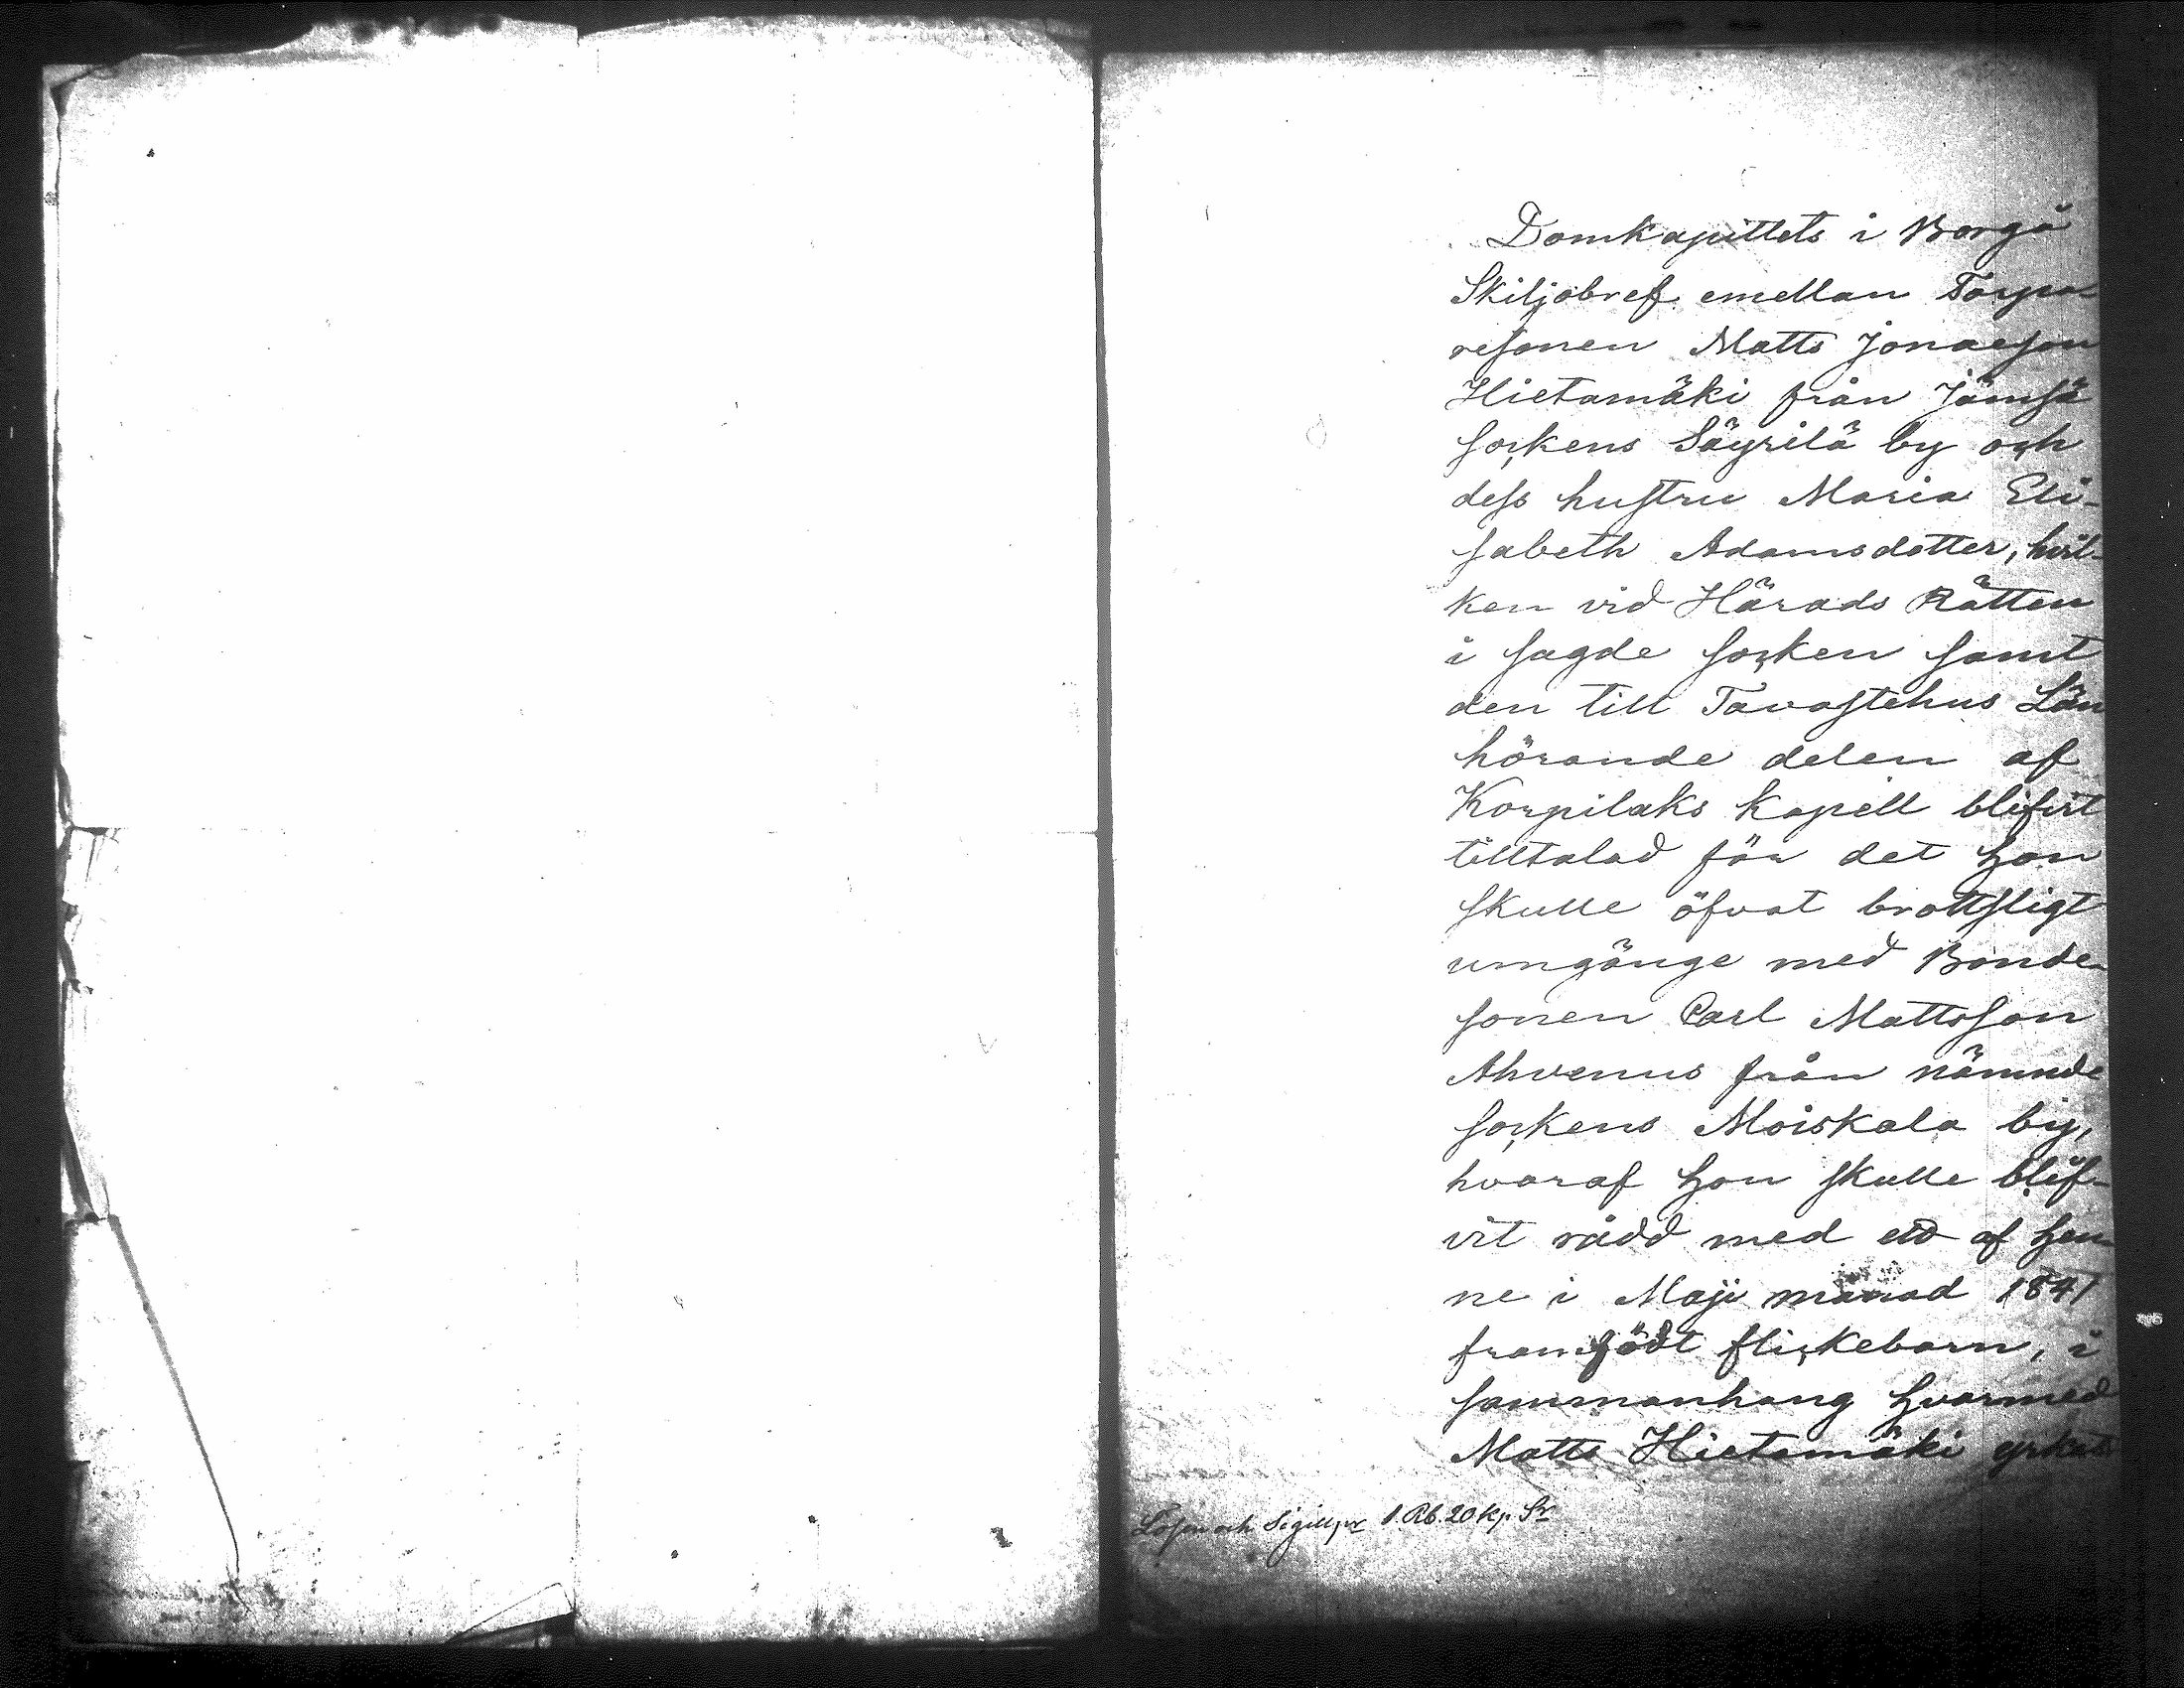 Domkapittels i Borgå
Skiljobref emellan Torpa-
resonen Matts Jonaeson
Hietamäki från Jämsä
sockens Säyrilä by och
dess hustru Maria Eli-
sabeth Adamsdotter, hvil-
ken vid Härads Rätten
i sagde socken samt
den till Tavastehus Län
hörande delen af
Korpilaks kapell blifvit
tilltalad för det hon
skulle öfvat brottsligt
umgänge med Bonde-
sonen Carl Mattsson
Ahvenus från nämnde
sockens Moiskala by,
hvaraf hon skulle blif-
vit rådd med ett af hen-
ne i Maji månad 1841
framfödt flickebarn, i
sammanhang hvarmed
Matts Hietamäki yrkat
Lösen och Sigill, pr 1. Rb. 20 Kp. Sr